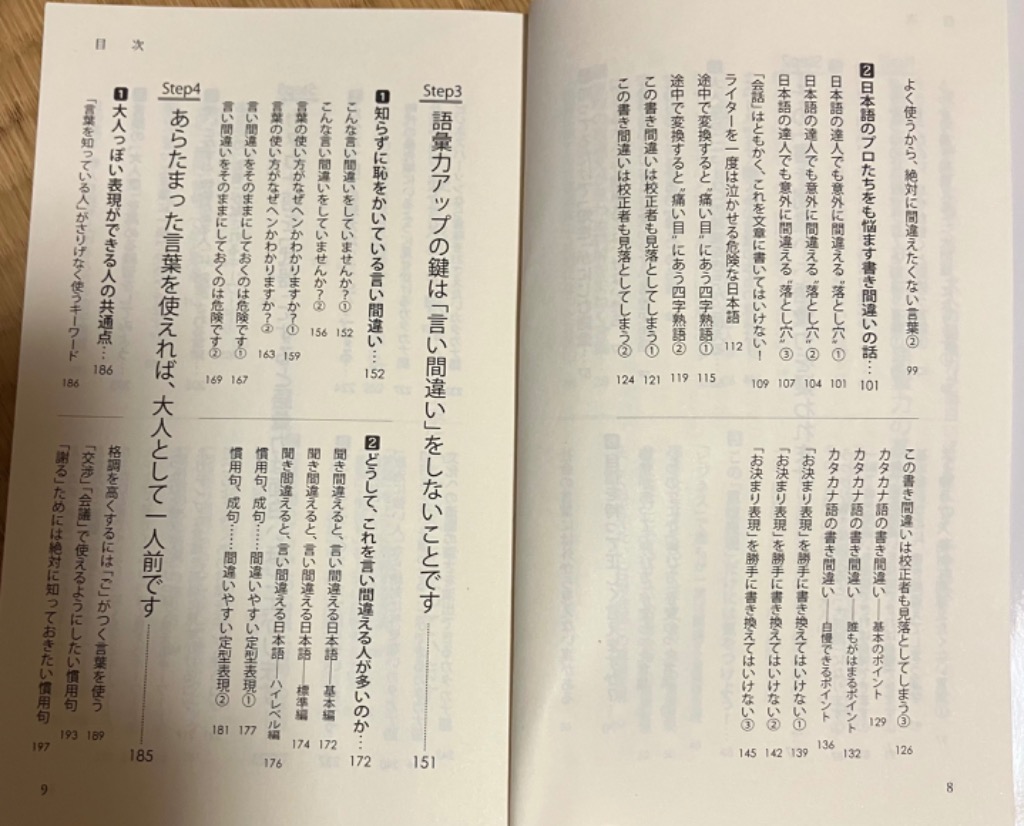 よく使うから、絶対に間違えたくない言葉② 99
2 日本語のプロたちをも悩ます書き間違いの話… 101
日本語の達人でも意外に間違える“落とし穴”① 101
日本語の達人でも意外に間違える“落とし穴”② 104
日本語の達人でも意外に間違える“落とし穴”③ 107
「会話」はともかく、これを文章に書いてはいけない! 109
ライターを一度は泣かせる危険な日本語 112
途中で変換すると“痛い目”にあう四字熟語① 115
途中で変換すると“痛い目”にあう四字熟語② 119
この書き間違いは校正者も見落としてしまう① 121
この書き間違いは校正者も見落としてしまう② 124
この書き間違いは校正者も見落としてしまう③ 126
カタカナ語の書き間違い――基本のポイント 129
カタカナ語の書き間違い――誰もがはまるポイント 132
カタカナ語の書き間違い――自慢できるポイント 136
「お決まり表現」を勝手に書き換えてはいけない① 139
「お決まり表現」を勝手に書き換えてはいけない② 142
「お決まり表現」を勝手に書き換えてはいけない③ 145
8
目 次
Step3
語彙力アップの鍵は「言い間違い」をしないことです 151
1 知らずに恥をかいている言い間違い… 152
こんな言い間違いをしていませんか?① 152
こんな言い間違いをしていませんか?② 156
言葉の使い方がなぜヘンかわかりますか?① 159
言葉の使い方がなぜヘンかわかりますか?② 163
言い間違いをそのままにしておくのは危険です① 167
言い間違いをそのままにしておくのは危険です② 169
2 どうして、これを言い間違える人が多いのか… 172
聞き間違えると、言い間違える日本語――基本編 172
聞き間違えると、言い間違える日本語――標準編 174
聞き間違えると、言い間違える日本語――ハイレベル編 176
慣用句、成句……間違いやすい定型表現① 177
慣用句、成句……間違いやすい定型表現② 181
Step4
あらたまった言葉を使えれば、大人として一人前です 185
1 大人っぽい表現ができる人の共通点… 186
「言葉を知っている人」がさりげなく使うキーワード 186
格調を高くするには「ご」がつく言葉を使う 189
「交渉」「会議」で使えるようにしたい慣用句 193
「謝る」ためには絶対に知っておきたい慣用句 197
9